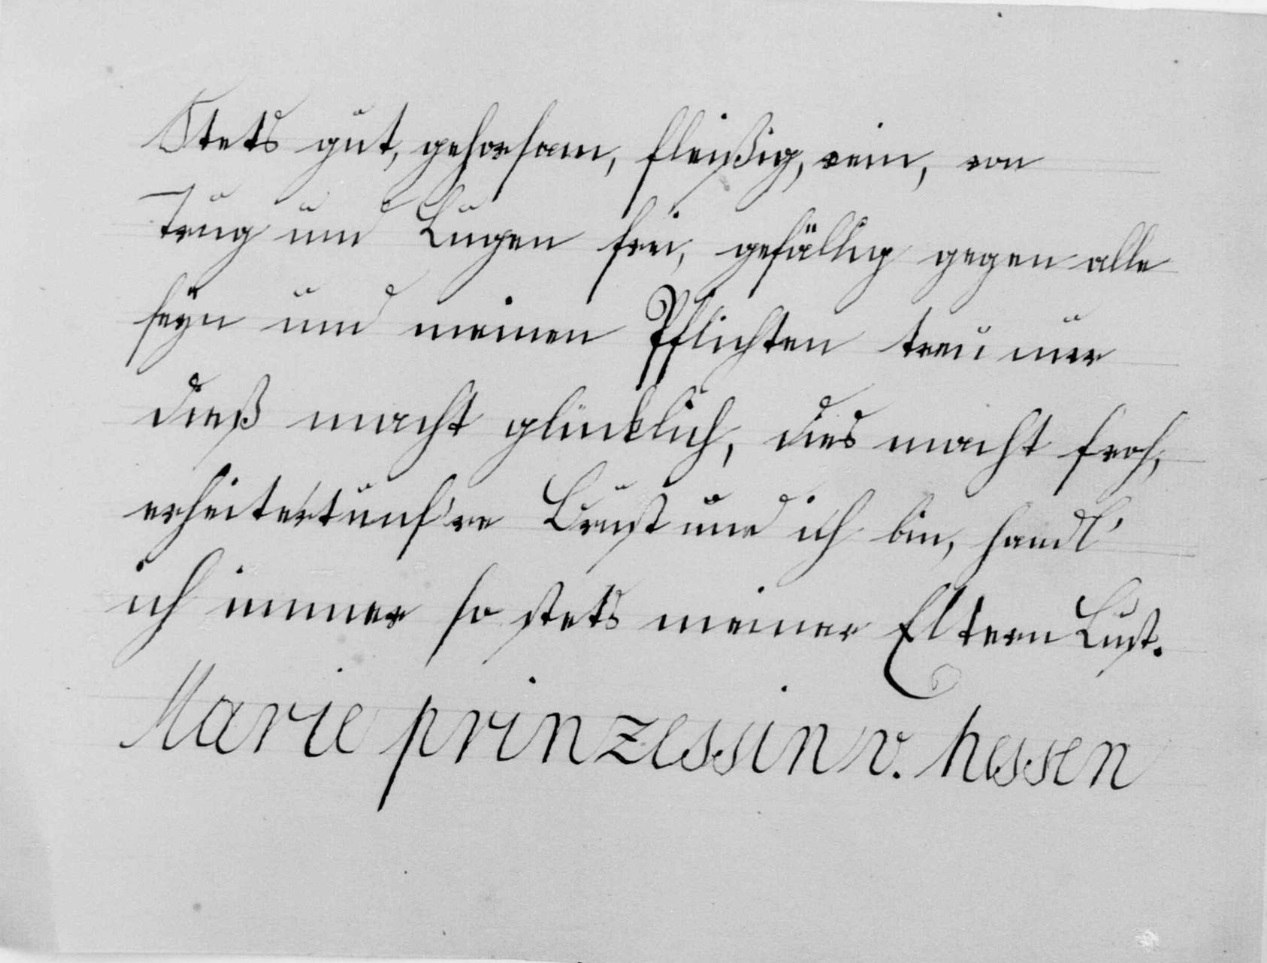 Stets gut, gehorsam, fleißig, rein, von
Trug und Lugen frei, gefällig gegen alle
seyn und meinen Pflichten treu nur
dieß macht glücklich, dies macht froh,
erheitert unsre Brust und ich bin, handl'
ich immer so stets meiner Eltern Lust.
Marie prinzessin v. hessen